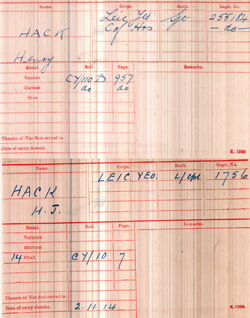 Corps. Rank. Regtl. No.
Leic Yeo Sjt 255184
HACK C of Hrs — do —
Henry
Medal. Roll. Page. Remarks.
VICTORY CY/10 B 957
BRITISH do do
STAR
Theatre of War first served in
Date of entry therein
K. 1380
Corps. Rank. Regtl. No.
HACK LEIC. YEO. L/Cpl 1756
H. J.
Medal. Roll. Page. Remarks.
VICTORY
BRITISH
14 STAR CY/10 7
Theatre of War first served in
Date of entry therein 2.11.14
K. 1380.